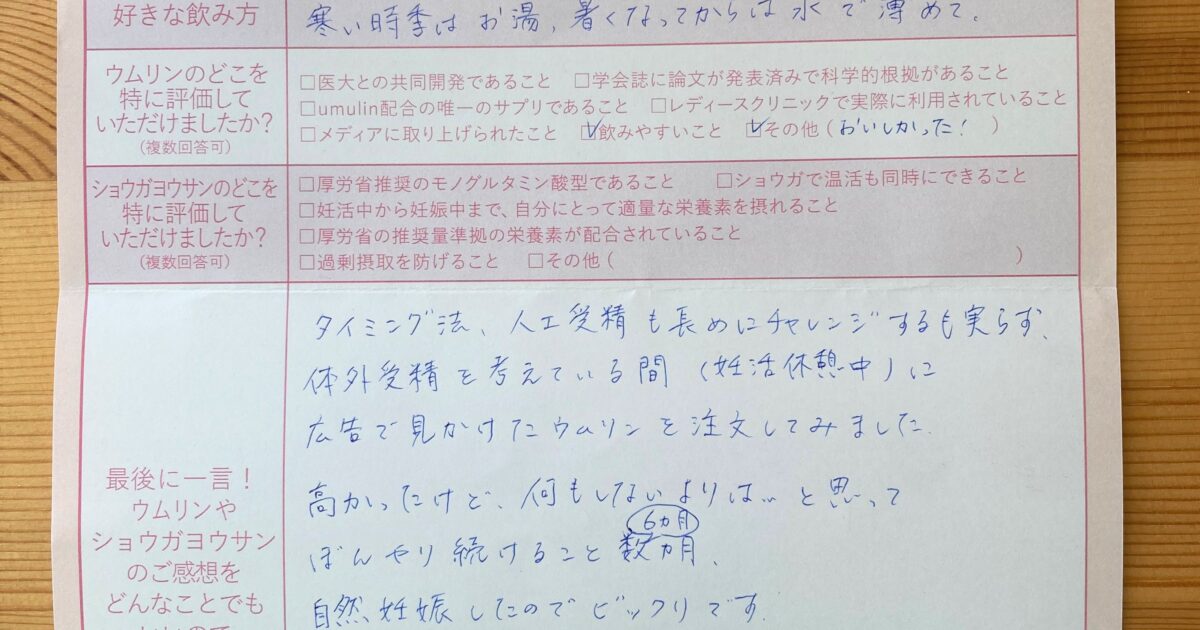 好きな飲み方
寒い時季はお湯、暑くなってからは水で薄めて。
ウムリンのどこを
特に評価して
いただけましたか?
(複数回答可)
□医大との共同開発であること □学会誌に論文が発表済みで科学的根拠があること
□umulin配合の唯一のサプリであること □レディースクリニックで実際に利用されていること
□メディアに取り上げられたこと ☑飲みやすいこと ☑その他(おいしかった! )
ショウガヨウサンのどこを
特に評価して
いただけましたか?
(複数回答可)
□厚労省推奨のモノグルタミン酸型であること □ショウガで温活も同時にできること
□妊活中から妊娠中まで、自分にとって適量な栄養素を摂れること
□厚労省の推奨量準拠の栄養素が配合されていること
□過剰摂取を防げること □その他( )
最後に一言!
ウムリンや
ショウガヨウサン
のご感想を
どんなことでも
タイミング法、人工受精も長めにチャレンジするも実らず、
体外受精を考えている間(妊活休憩中)に
広告で見かけたウムリンを注文してみました。
高かったけど、何もしないよりは…と思って
6ヵ月
ぼんやり続けること数ヵ月、
自然妊娠したのでビックリです。